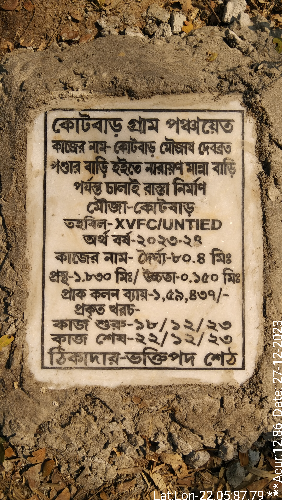 কোটবাড় গ্রাম পঞ্চায়েত
কাজের নাম- কোটবাড় মৌজায় দেবব্রত
পণ্ডার বাড়ি হইতে নারায়ণ মান্না বাড়ি
পর্যন্ত ঢালাই রাস্তা নির্মাণ
মৌজা-কোটবাড়
তহবিল- XVFC/UNTIED
অর্থ বর্ষ-২০২৩-২৪
কাজের নাম- দৈর্ঘ্য-৮০.৪ মিঃ
প্রস্থ-১.৮৩০ মিঃ/ উচ্চতা-০.১৫০ মিঃ
প্রাক কলন ব্যয়-১,৫৯,৪৩৭/-
প্রকৃত খরচ-
কাজ শুরু-১৮/১২/২৩
কাজ শেষ-২২/১২/২৩
ঠিকাদার-ভক্তিপদ শেঠ
Lat Lon-22.05 87.79
**Acur:12.86 Date: 27-12-2023